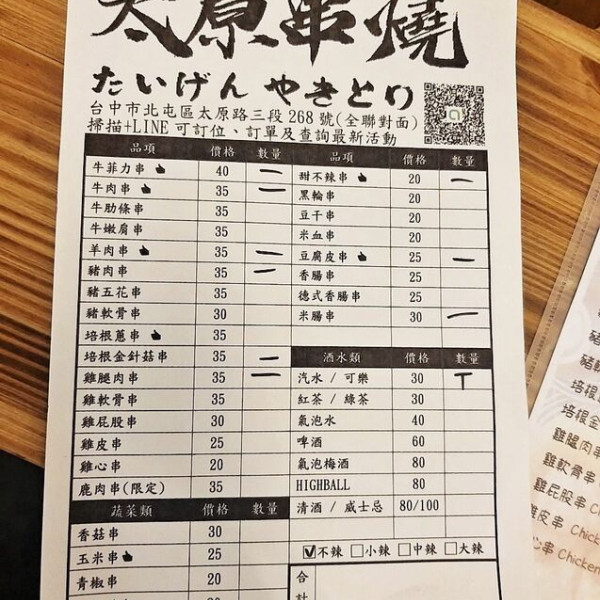 太原串燒
たいげん やきとり
台中市北屯區太原路三段268號(全聯對面)
掃描+LINE可訂位、訂單及查詢最新活動
品項 價格 數量
牛菲力串 40 一
牛肉串 35 一
牛肋條串 35
牛嫩肩串 35
羊肉串 35 一
豬肉串 35 一
豬五花串 35
豬軟骨串 30
培根蔥串 35
培根金針菇串 35 二
雞腿肉串 35 一
雞軟骨串 35
雞屁股串 30
雞皮串 25
雞心串 20
鹿肉串(限定) 35
蔬菜類 價格 數量
香菇串 30
玉米串 25
青椒串 20
品項 價格 數量
甜不辣串 20 一
黑輪串 20
豆干串 20
米血串 20
豆腐皮串 25 一
香腸串 25
德式香腸串 25
米腸串 30 一
酒水類 價格 數量
汽水 / 可樂 30 T
紅茶 / 綠茶 30
氣泡水 40
啤酒 60
氣泡梅酒 80
HIGHBALL 80
清酒 / 威士忌 80/100
☑不辣 □小辣 □中辣 □大辣
合
計
豬
培根
培根金
雞腿肉串
雞軟骨串
雞屁股串 C
雞皮串 Chick
心串 Chicken